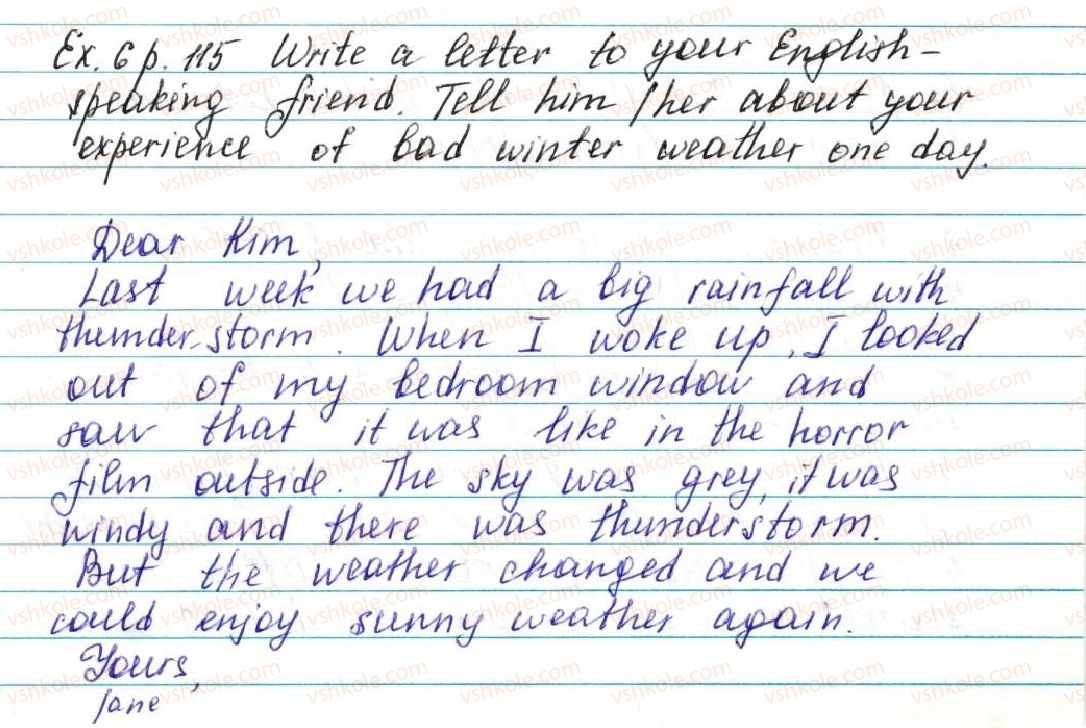 Ex. 6 p. 115 Write a letter to your English-
speaking friend. Tell him /her about your
experience of bad winter weather one day.
Dear Kim,
Last week we had a big rainfall with
thunder-storm. When I woke up, I looked
out of my bedroom window and
saw that it was like in the horror
film outside. The sky was grey, it was
windy and there was thunderstorm.
But the weather changed and we
could enjoy sunny weather again.
Yours,
Jane
vshkole.com